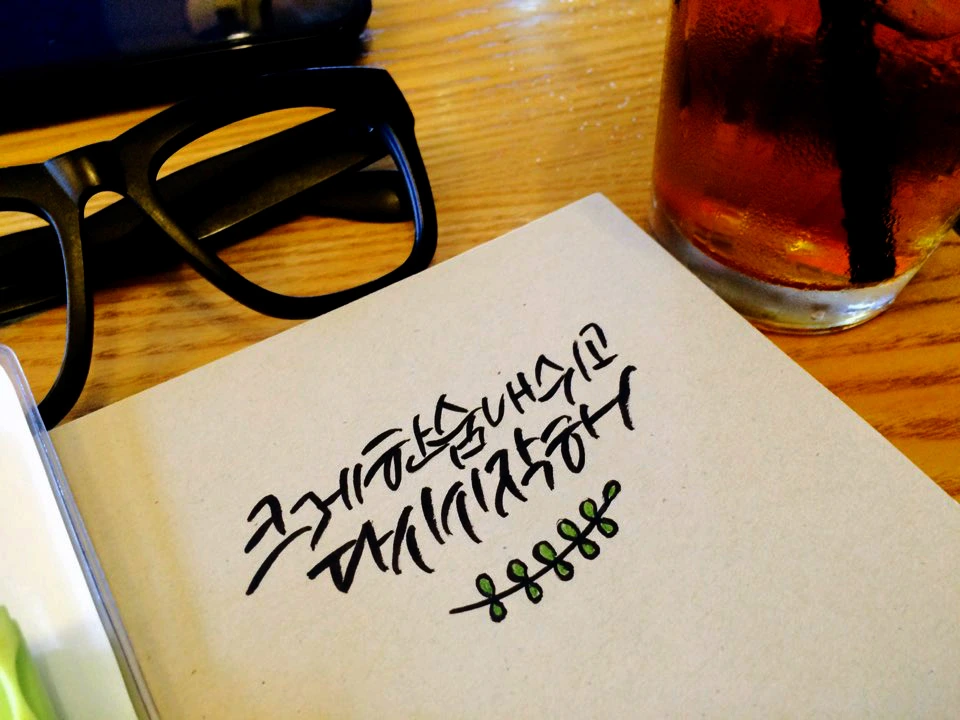 크게 한숨 내쉬고
다시 시작해